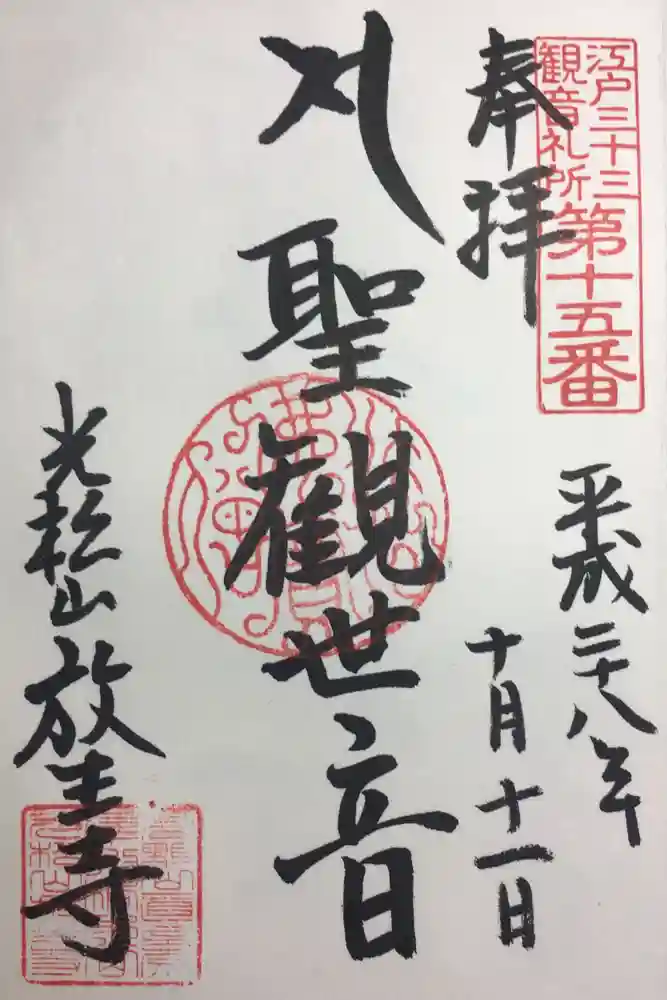 江戸三十三
観音札所
第十五番
奉拝
平成二十八年
十月十一日
聖観世音
光松山放生寺